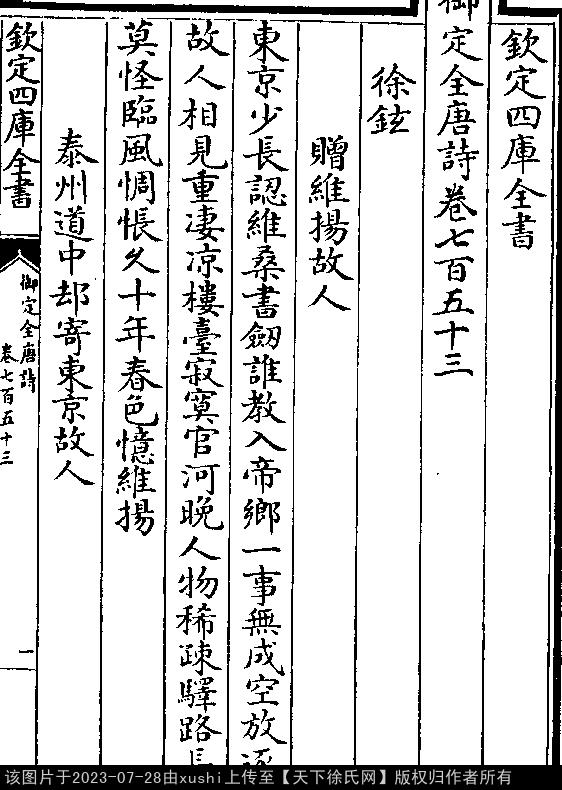 欽定四庫全書
御定全唐詩卷七百五十三
徐鉉
贈維揚故人
東京少長認維桑書劒誰教入帝鄉一事無成空放逐
故人相見重凄凉樓臺寂寞官河晚人物稀疎驛路長
莫怪臨風惆悵久十年春色憶維揚
泰州道中却寄東京故人
欽定四庫全書
御定全唐詩
卷七百五十三
一
该图片于2023-07-28由xushi上传至【天下徐氏网】版权归作者所有